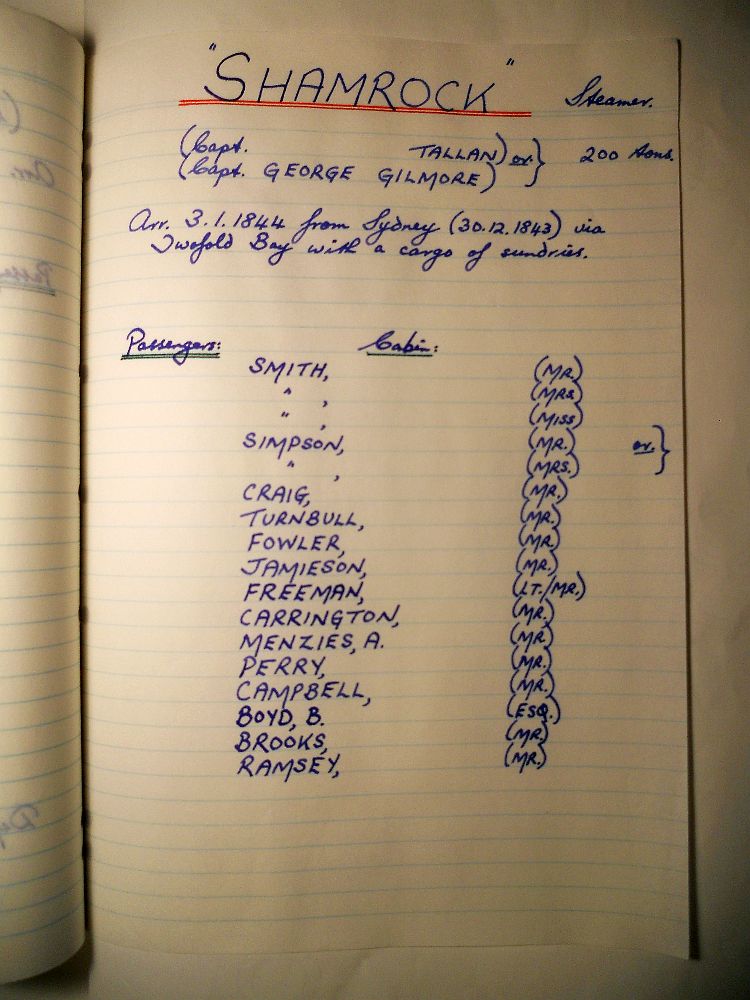 "SHAMROCK" Steamer.
(Capt. TALLAN) or } 200 tons.
(Capt. GEORGE GILMORE)
Arr. 3.1.1844 from Sydney (30.12.1843) via
Twofold Bay with a cargo of sundries.
Passengers: Cabin:
SMITH, (MR.)
" , (MRS.)
" , (MISS)
SIMPSON, (MR.) or }
" , (MRS.)
CRAIG, (MR.)
TURNBULL, (MR.)
FOWLER, (MR.)
JAMIESON, (MR.)
FREEMAN, (LT./MR.)
CARRINGTON, (MR.)
MENZIES, A. (MR.)
PERRY, (MR.)
CAMPBELL, (MR.)
BOYD, B. (ESQ.)
BROOKS, (MR.)
RAMSEY, (MR.)